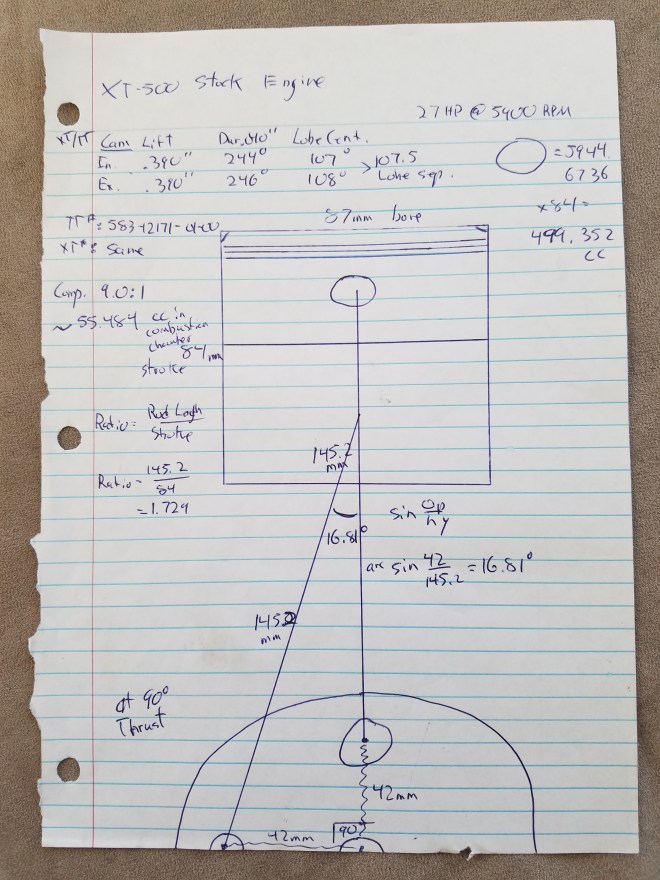 XT-500 Stock Engine
27 HP @ 5400 RPM
XT/TT Cam Lift Dur. .040" Lobe Cent.
In. .390" 244° 107°
Ex. .390" 246° 108°
107.5
Lobe sep.
= 5944.
6736
x 84 =
499.352
cc
TT#: 583-12171-01-00
XT#: Same
87mm bore
Comp. 9.0:1
~ 55.484 cc in
combustion
chamber
84mm
stroke
Ratio = Rod Length
Stroke
Ratio = 145.2
84
= 1.729
145.2
mm
16.81°
sin op
hy
arc sin 42
145.2 = 16.81°
145.2
mm
at 90°
Thrust
42mm
42mm
90°